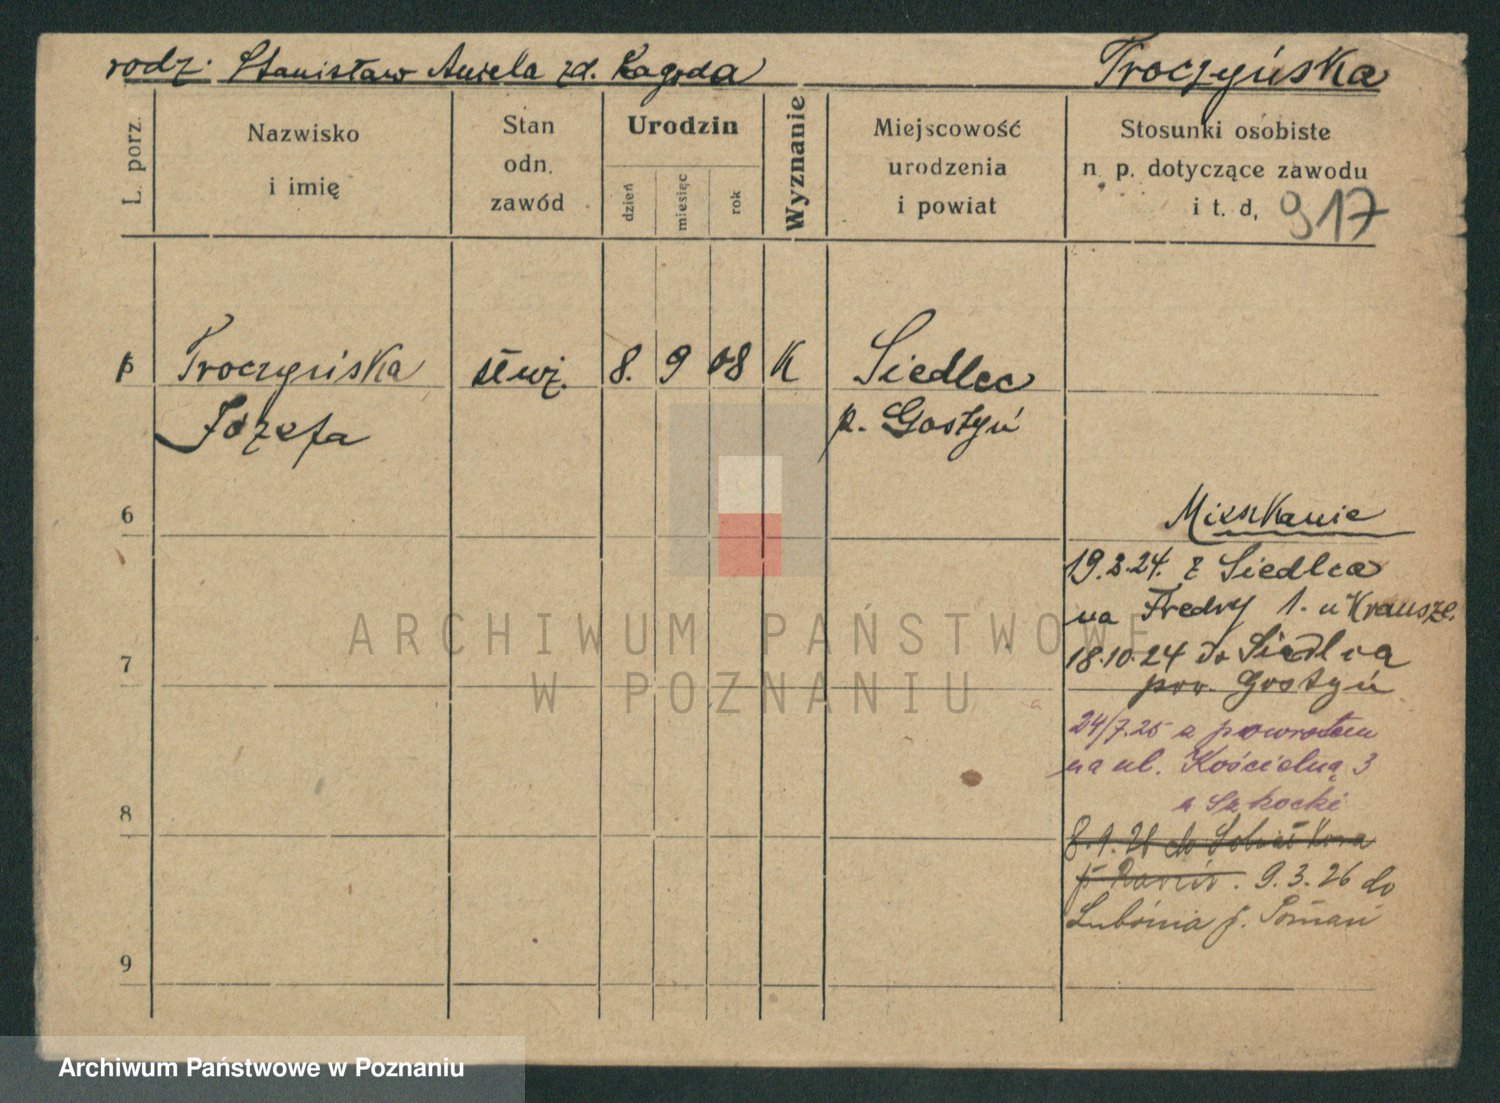 rodz. Stanisław Aniela zd. Ragoda
Troczyńska
L. porz.
Nazwisko
i imię
Stan
odn.
zawód
Urodzin
dzień
miesiąc
rok
Wyznanie
Miejscowość
urodzenia
i powiat
Stosunki osobiste
n. p. dotyczące zawodu
i t. d.
917
Troczyńska służ. 8. 9 08 K Siedlec
Józefa p. Gostyń
6
Mieszkanie
19.3.24. z Siedlca
na Fredry 1. u Krausze.
7
18.10.24 do Siedlca
pow. Gostyń
24/7.25 z powrotem
na ul. Kościelną 3
u Szkocki
8
8.1.26 do
9.3.26 do
Lubonia p. Poznań
9
ARCHIWUM PAŃSTWOWE
W POZNANIU
Archiwum Państwowe w Poznaniu